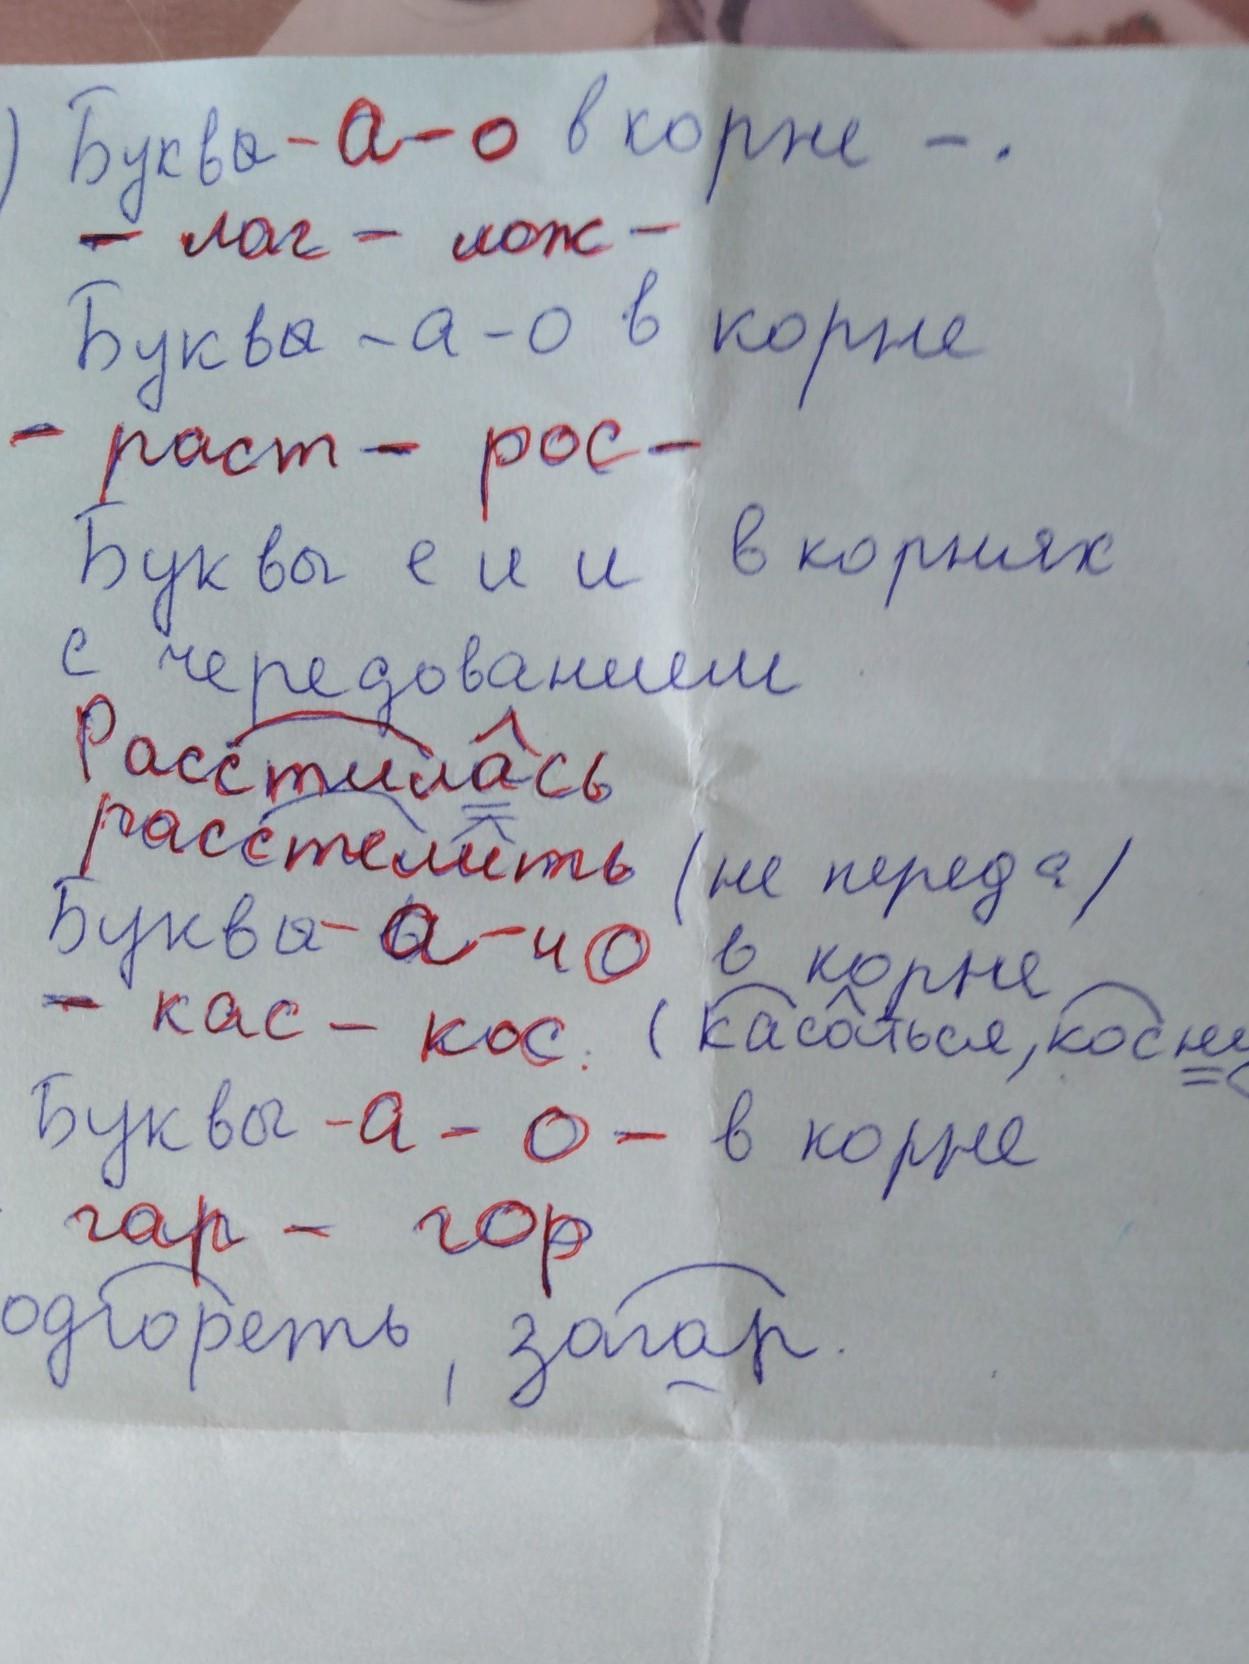 ) Буквы - а - о в корне - .
- лаг - лож -
Буквы - а - о в корне
- раст - рос -
Буквы е и и в корнях
с чередованием
Расстилась
расстелить (не перед а)
Буквы - а - и о в корне
- кас - кос. (касаться, косну
Буквы - а - о - в корне
гар - гор
одгореть, загар.